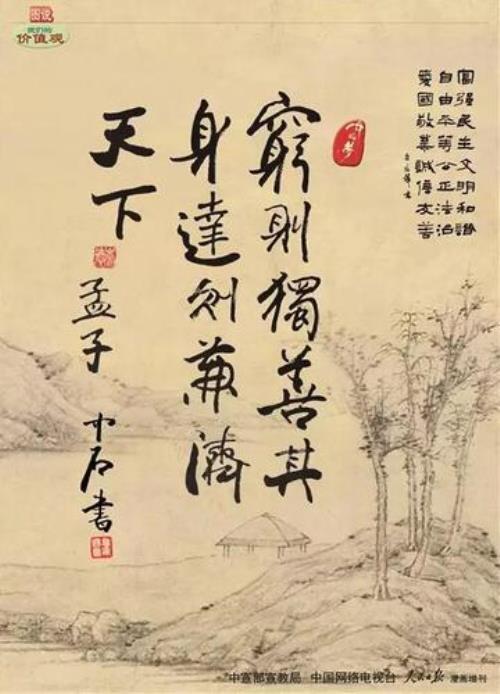 图说
我们的
价值观
富强民主文明和谐
自由平等公正法治
愛國敬業誠信友善
中国梦
窮則獨善其
身達則兼濟
天下
孟子
中石書
中宣部宣教局 中国网络电视台 人民日报 漫画增刊